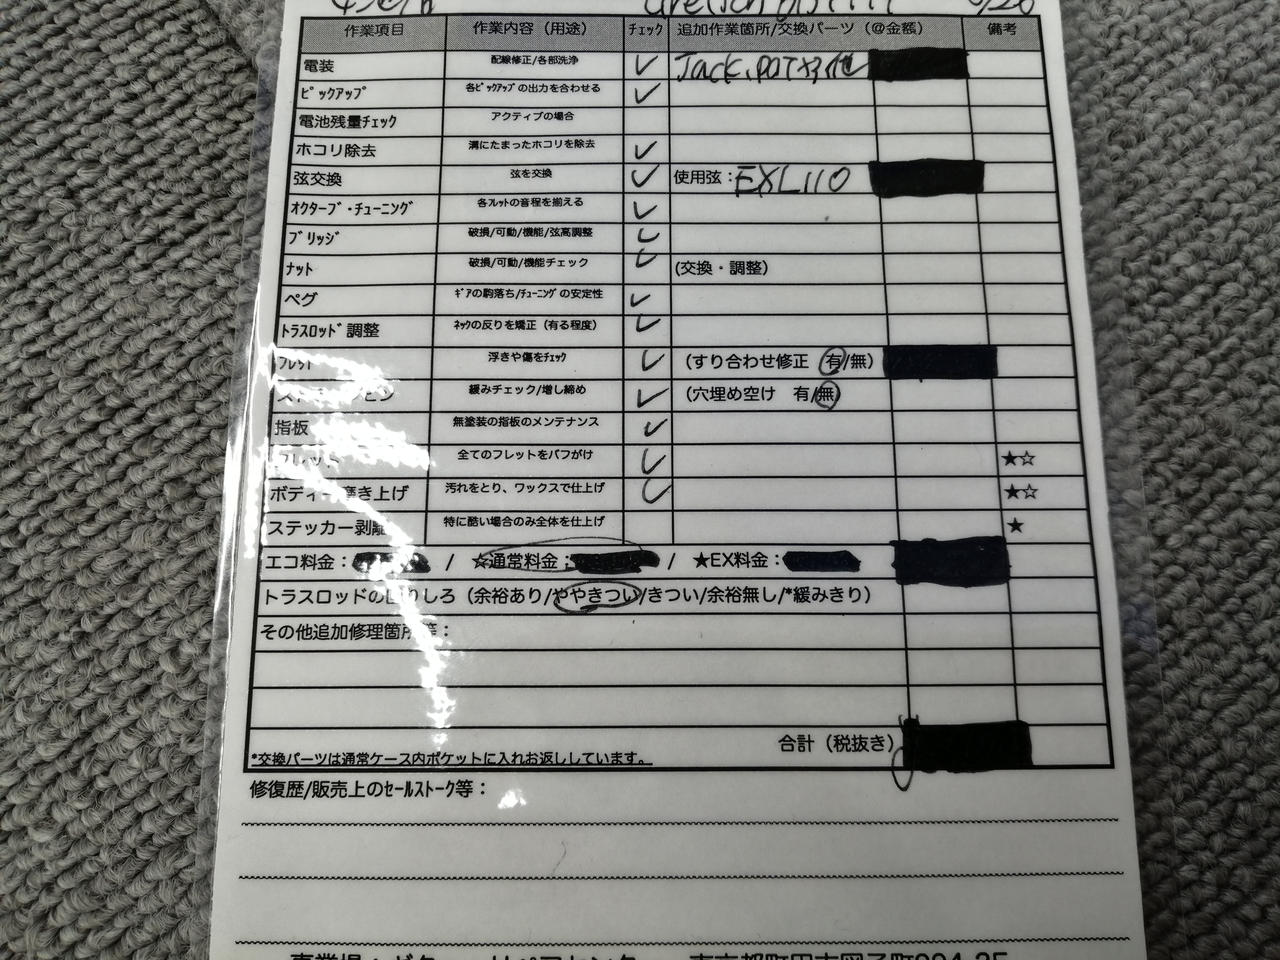 作業項目 作業内容（用途） チェック 追加作業箇所/交換パーツ（@金額） 備考
電装 配線修正/各部洗浄 ✓ Jack, POT×3 他
ピックアップ 各ピックアップの出力を合わせる ✓
電池残量チェック アクティブの場合
ホコリ除去 溝にたまったホコリを除去 ✓
弦交換 弦を交換 ✓ 使用弦：EXL110
オクターブ・チューニング 各フレットの音程を揃える ✓
ブリッジ 破損/可動/機能/弦高調整 ✓
ナット 破損/可動/機能チェック ✓ (交換・調整)
ペグ ギアの駒落ち/チューニングの安定性 ✓
トラスロッド調整 ネックの反りを矯正（有る程度） ✓
フレット 浮きや傷をチェック ✓ （すり合わせ修正 有/無）
緩みチェック/増し締め ✓ （穴埋め空け 有/無）
指板 無塗装の指板のメンテナンス ✓
フレット 全てのフレットをバフがけ ✓ ★☆
ボディー磨き上げ 汚れをとり、ワックスで仕上げ ✓ ★☆
ステッカー剥離 特に酷い場合のみ全体を仕上げ ★
エコ料金： / ☆通常料金： / ★EX料金：
トラスロッドの回りしろ（余裕あり/ややきつい/きつい/余裕無し/*緩みきり）
その他追加修理箇所等：
合計（税抜き）
*交換パーツは通常ケース内ポケットに入れお返ししています。
修復歴/販売上のセールストーク等：